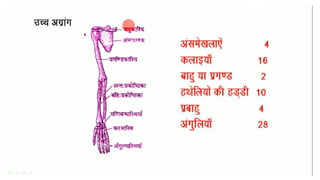 उच्च अग्रांग
जत्रुकास्थि
अंसफलक
प्रगण्डकास्थि
अन्तः प्रकोष्ठिका
बहिः प्रकोष्ठिका
मणिबन्धास्थियाँ
करभास्थि
अँगुल्यास्थियाँ
अंसमेखलाऐं 4
कलाइयाँ 16
बाहु या प्रगण्ड 2
हथेलियों की हड्डी 10
प्रबाहु 4
अंगुलियाँ 28